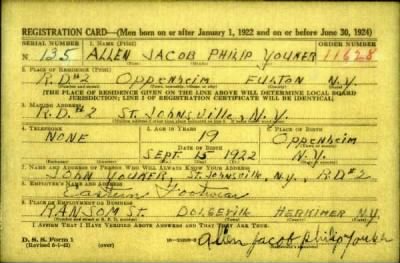 REGISTRATION CARD—(Men born on or after January 1, 1922 and on or before June 30, 1924)
SERIAL NUMBER 1. NAME (Print) ORDER NUMBER
N 135 ALLEN JACOB PHILIP YOUKER 11628
(First) (Middle) (Last)
2. PLACE OF RESIDENCE (Print)
R.D#2 Oppenheim FULTON N.Y.
(Number and street) (Town, township, village, or city) (County) (State)
[THE PLACE OF RESIDENCE GIVEN ON THE LINE ABOVE WILL DETERMINE LOCAL BOARD
JURISDICTION; LINE 2 OF REGISTRATION CERTIFICATE WILL BE IDENTICAL]
3. MAILING ADDRESS
R.D.#2 St. Johnsville, N.Y.
4. TELEPHONE 5. AGE IN YEARS 6. PLACE OF BIRTH
NONE 19 Oppenheim
DATE OF BIRTH
SEPT. 15 1922 N.Y.
7. NAME AND ADDRESS OF PERSON WHO WILL ALWAYS KNOW YOUR ADDRESS
JOHN YOUKER, St. Johnsville, N.Y., R.D#2
8. EMPLOYER'S NAME AND ADDRESS
Footwear
9. PLACE OF EMPLOYMENT OR BUSINESS
RANSOM ST. DOLGEVILLE HERKIMER N.Y.
(Number and street or R. F. D. number) (Town) (County) (State)
I AFFIRM THAT I HAVE VERIFIED ABOVE ANSWERS AND THAT THEY ARE TRUE.
D. S. S. Form 1
(over)
Allen Jacob Philip Youker